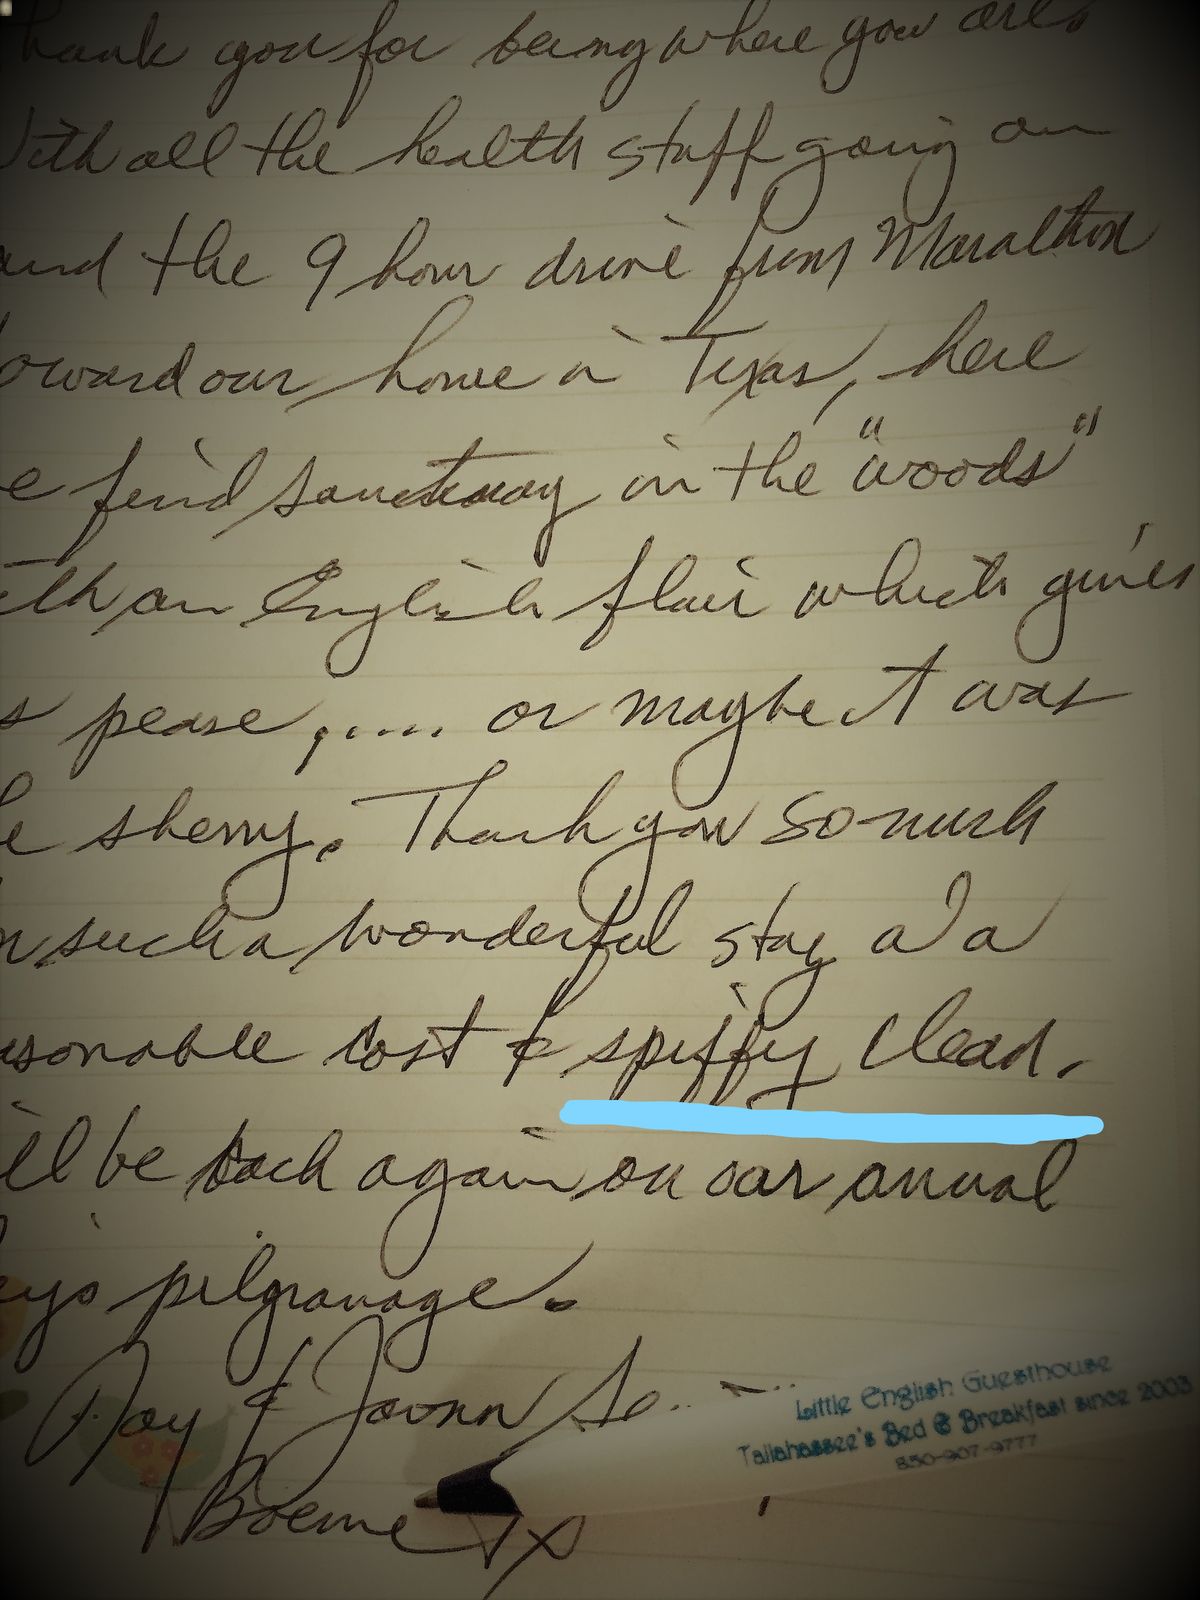 hank you for being where you are.
ith all the health stuff going on
and the 9 hour drive from Marathon
oward our home in Texas, here
e find sanctuary in the "woods"
ith an English flair which gives
s pease ..... or maybe it was
e sherry. Thank you so much
r such a wonderful stay at a
asonable cost & spiffy clean.
'll be back again on our annual
eys pilgramage.
Roy & Joann
Boerne TX
Little English Guesthouse
Tallahassee's Bed & Breakfast since 2003
850-907-9777